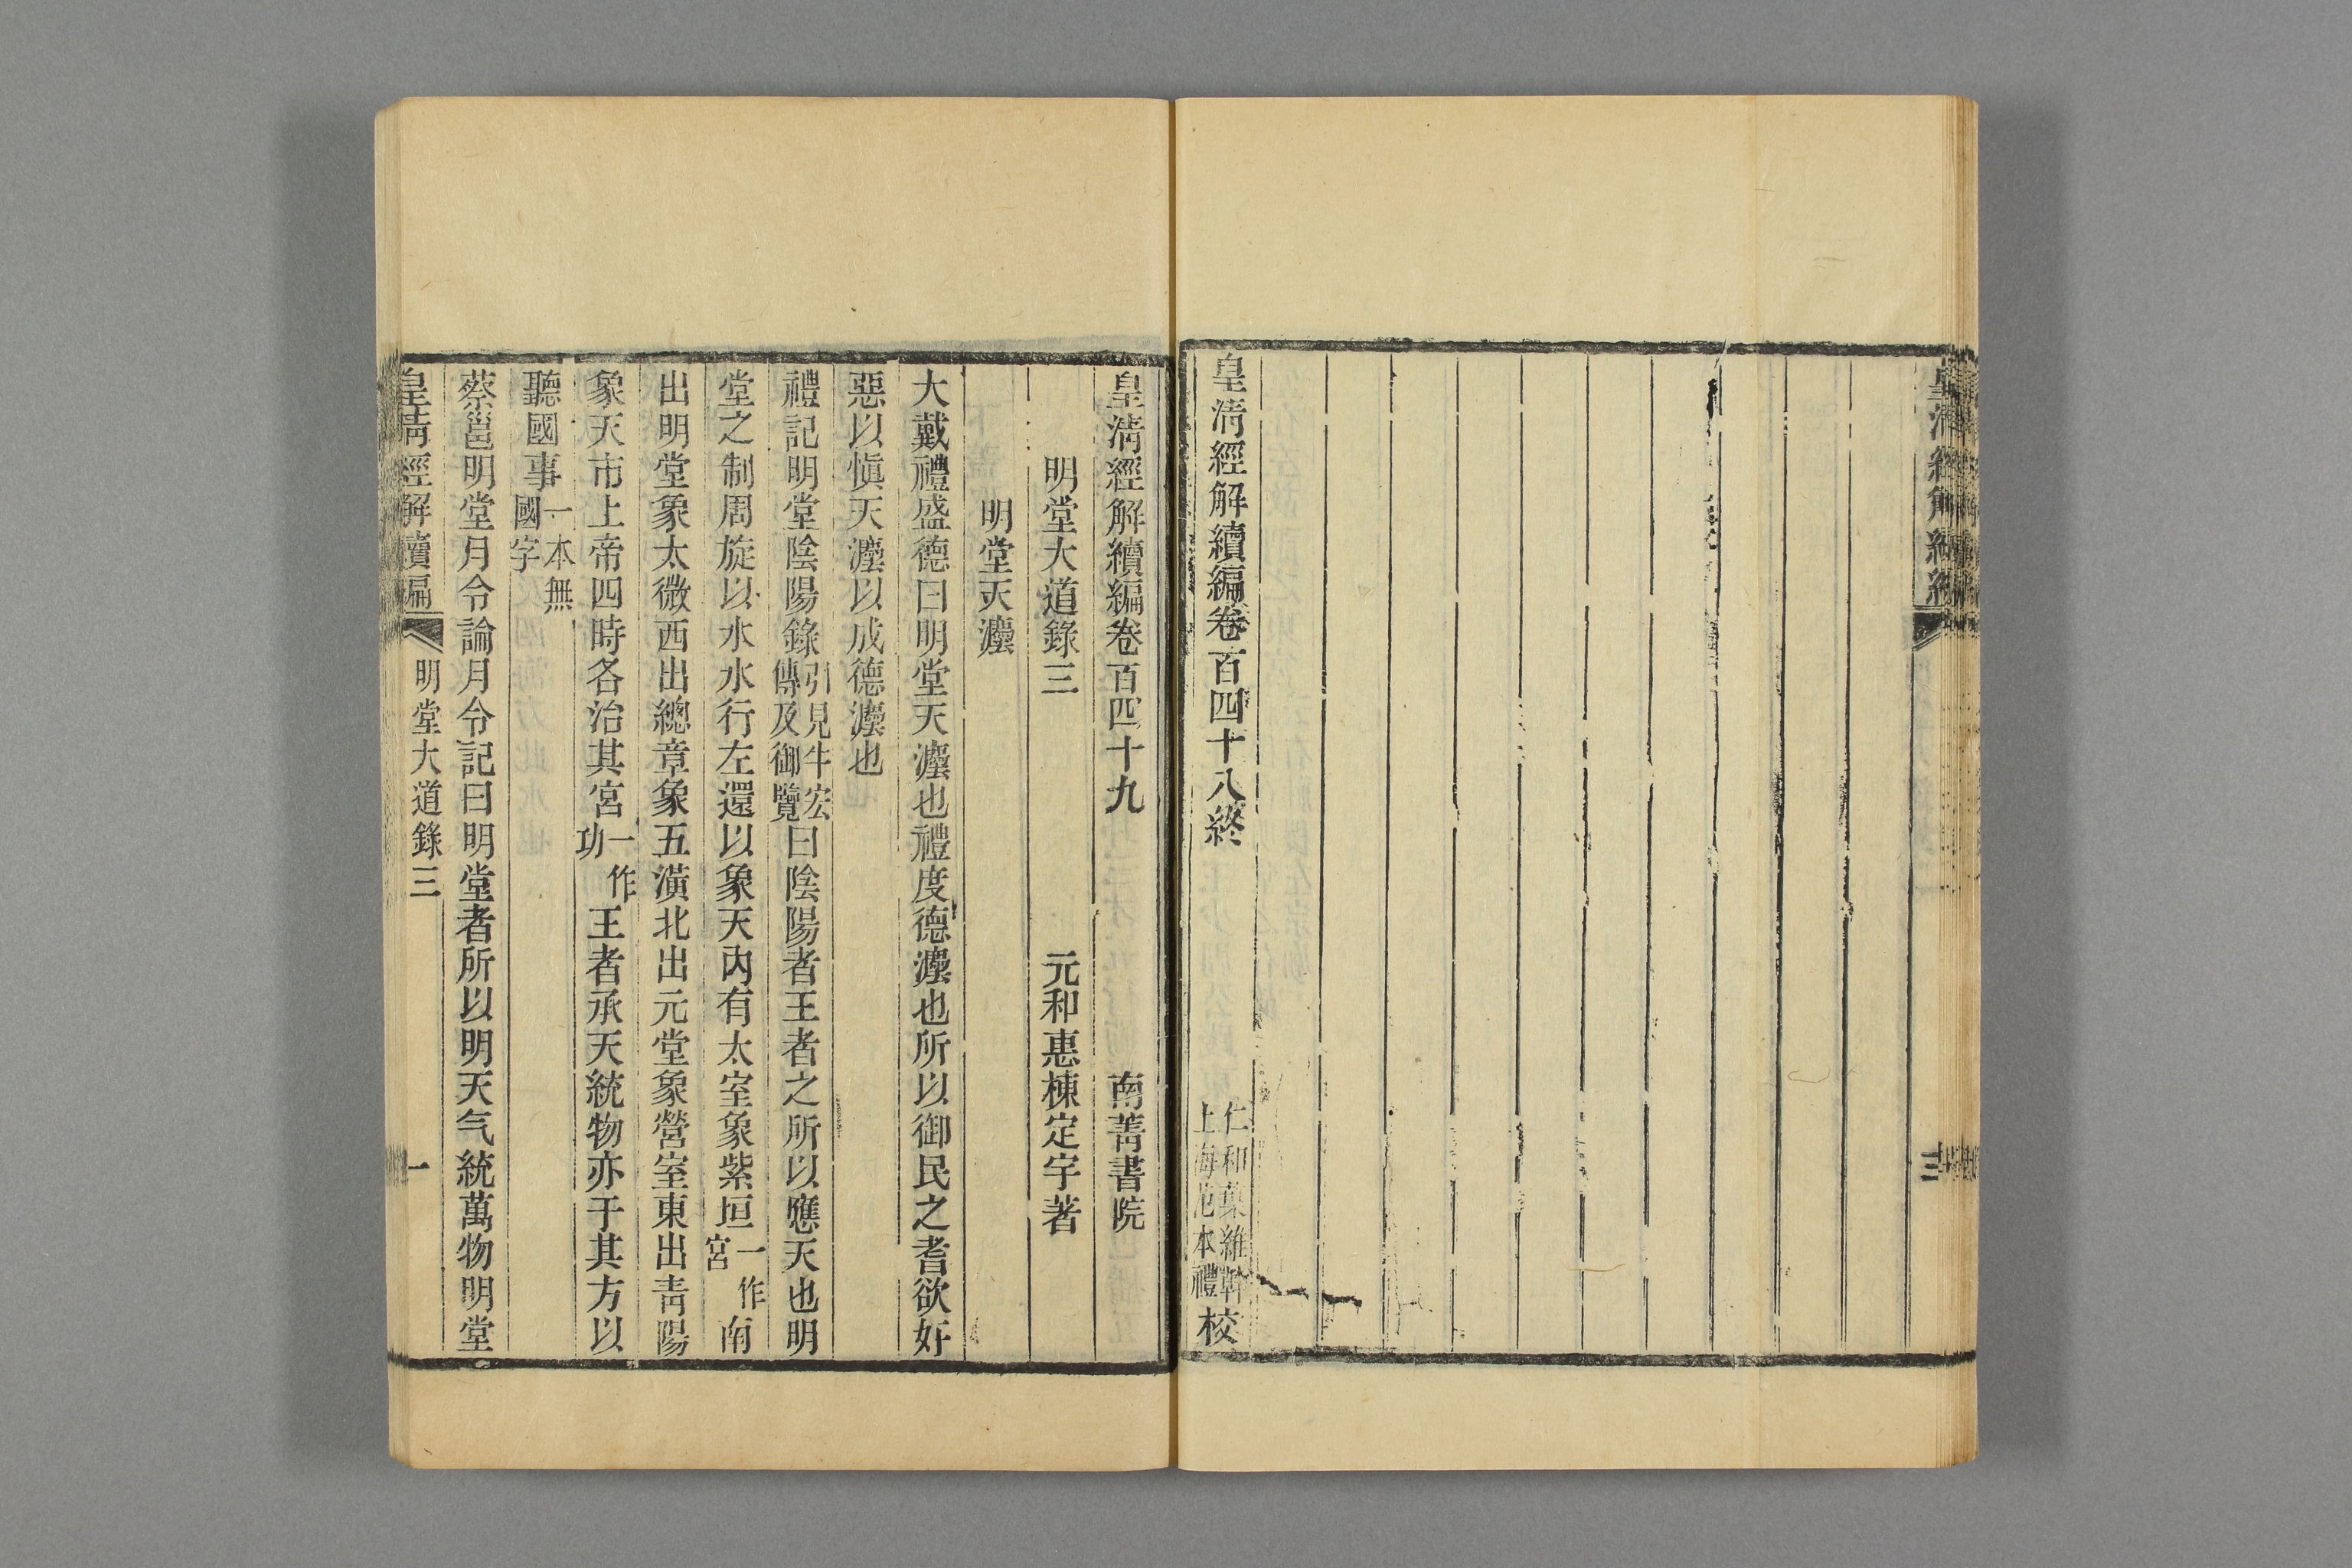 皇清經解續編卷百四十八終
仁和葉維幹
上海范本禮
校
皇清經解續編卷百四十九
南菁書院
明堂大道錄三
元和惠棟定宇著
明堂天灋
大戴禮盛德曰明堂天灋也禮度德灋也所以御民之耆欲好
惡以愼天灋以成德灋也
禮記明堂陰陽錄引見牛宏傳及御覽曰陰陽者王者之所以應天也明
堂之制周旋以水水行左還以象天內有太室象紫垣一作宮南
出明堂象太微西出總章象五潢北出元堂象營室東出靑陽
象天市上帝四時各治其宮一作功王者承天統物亦于其方以
聽國事一本無國字
蔡邕明堂月令論月令記曰明堂者所以明天气統萬物明堂
皇清經解續編
明堂大道錄三
一